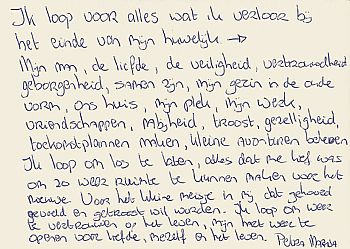 Ik loop voor alles wat ik verloor bij
het einde van mijn huwelijk →
Mijn man, de liefde, de veiligheid, vertrouwdheid
geborgenheid, samen zijn, mijn gezin in de oude
vorm, ons huis, mijn plek, mijn werk,
vriendschappen, nabijheid, troost, gezelligheid,
toekomstplannen maken, kleine avonturen beleven
Ik loop om los te laten, alles dat me lief was
om zo weer ruimte te kunnen maken voor het
nieuwe. Voor het kleine meisje in mij dat gehoord
gevoeld en getroost wil worden. Ik loop om weer
te vertrouwen op het leven, mijn hart weer te
openen voor liefde, mezelf en het leven.
Petra